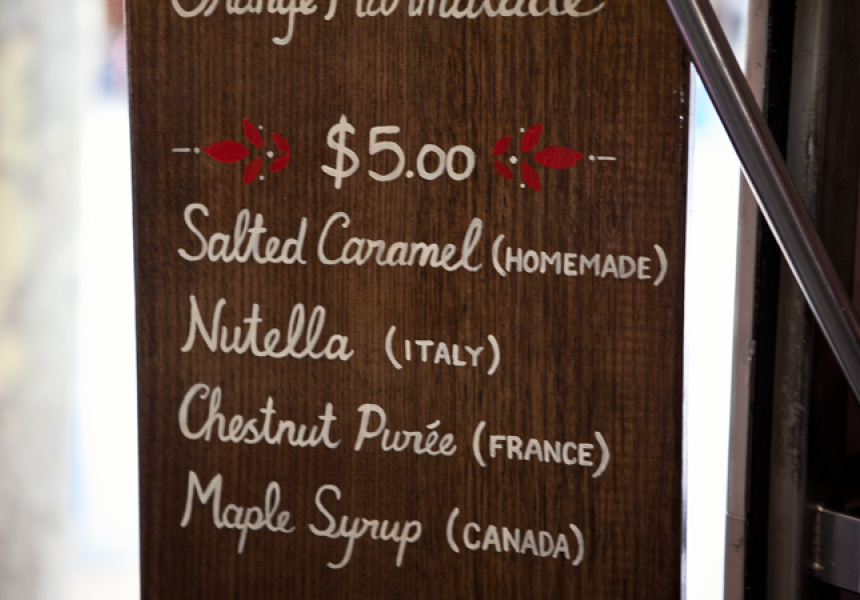 Orange Marmalade
$5.00
Salted Caramel (HOMEMADE)
Nutella (ITALY)
Chestnut Purée (FRANCE)
Maple Syrup (CANADA)